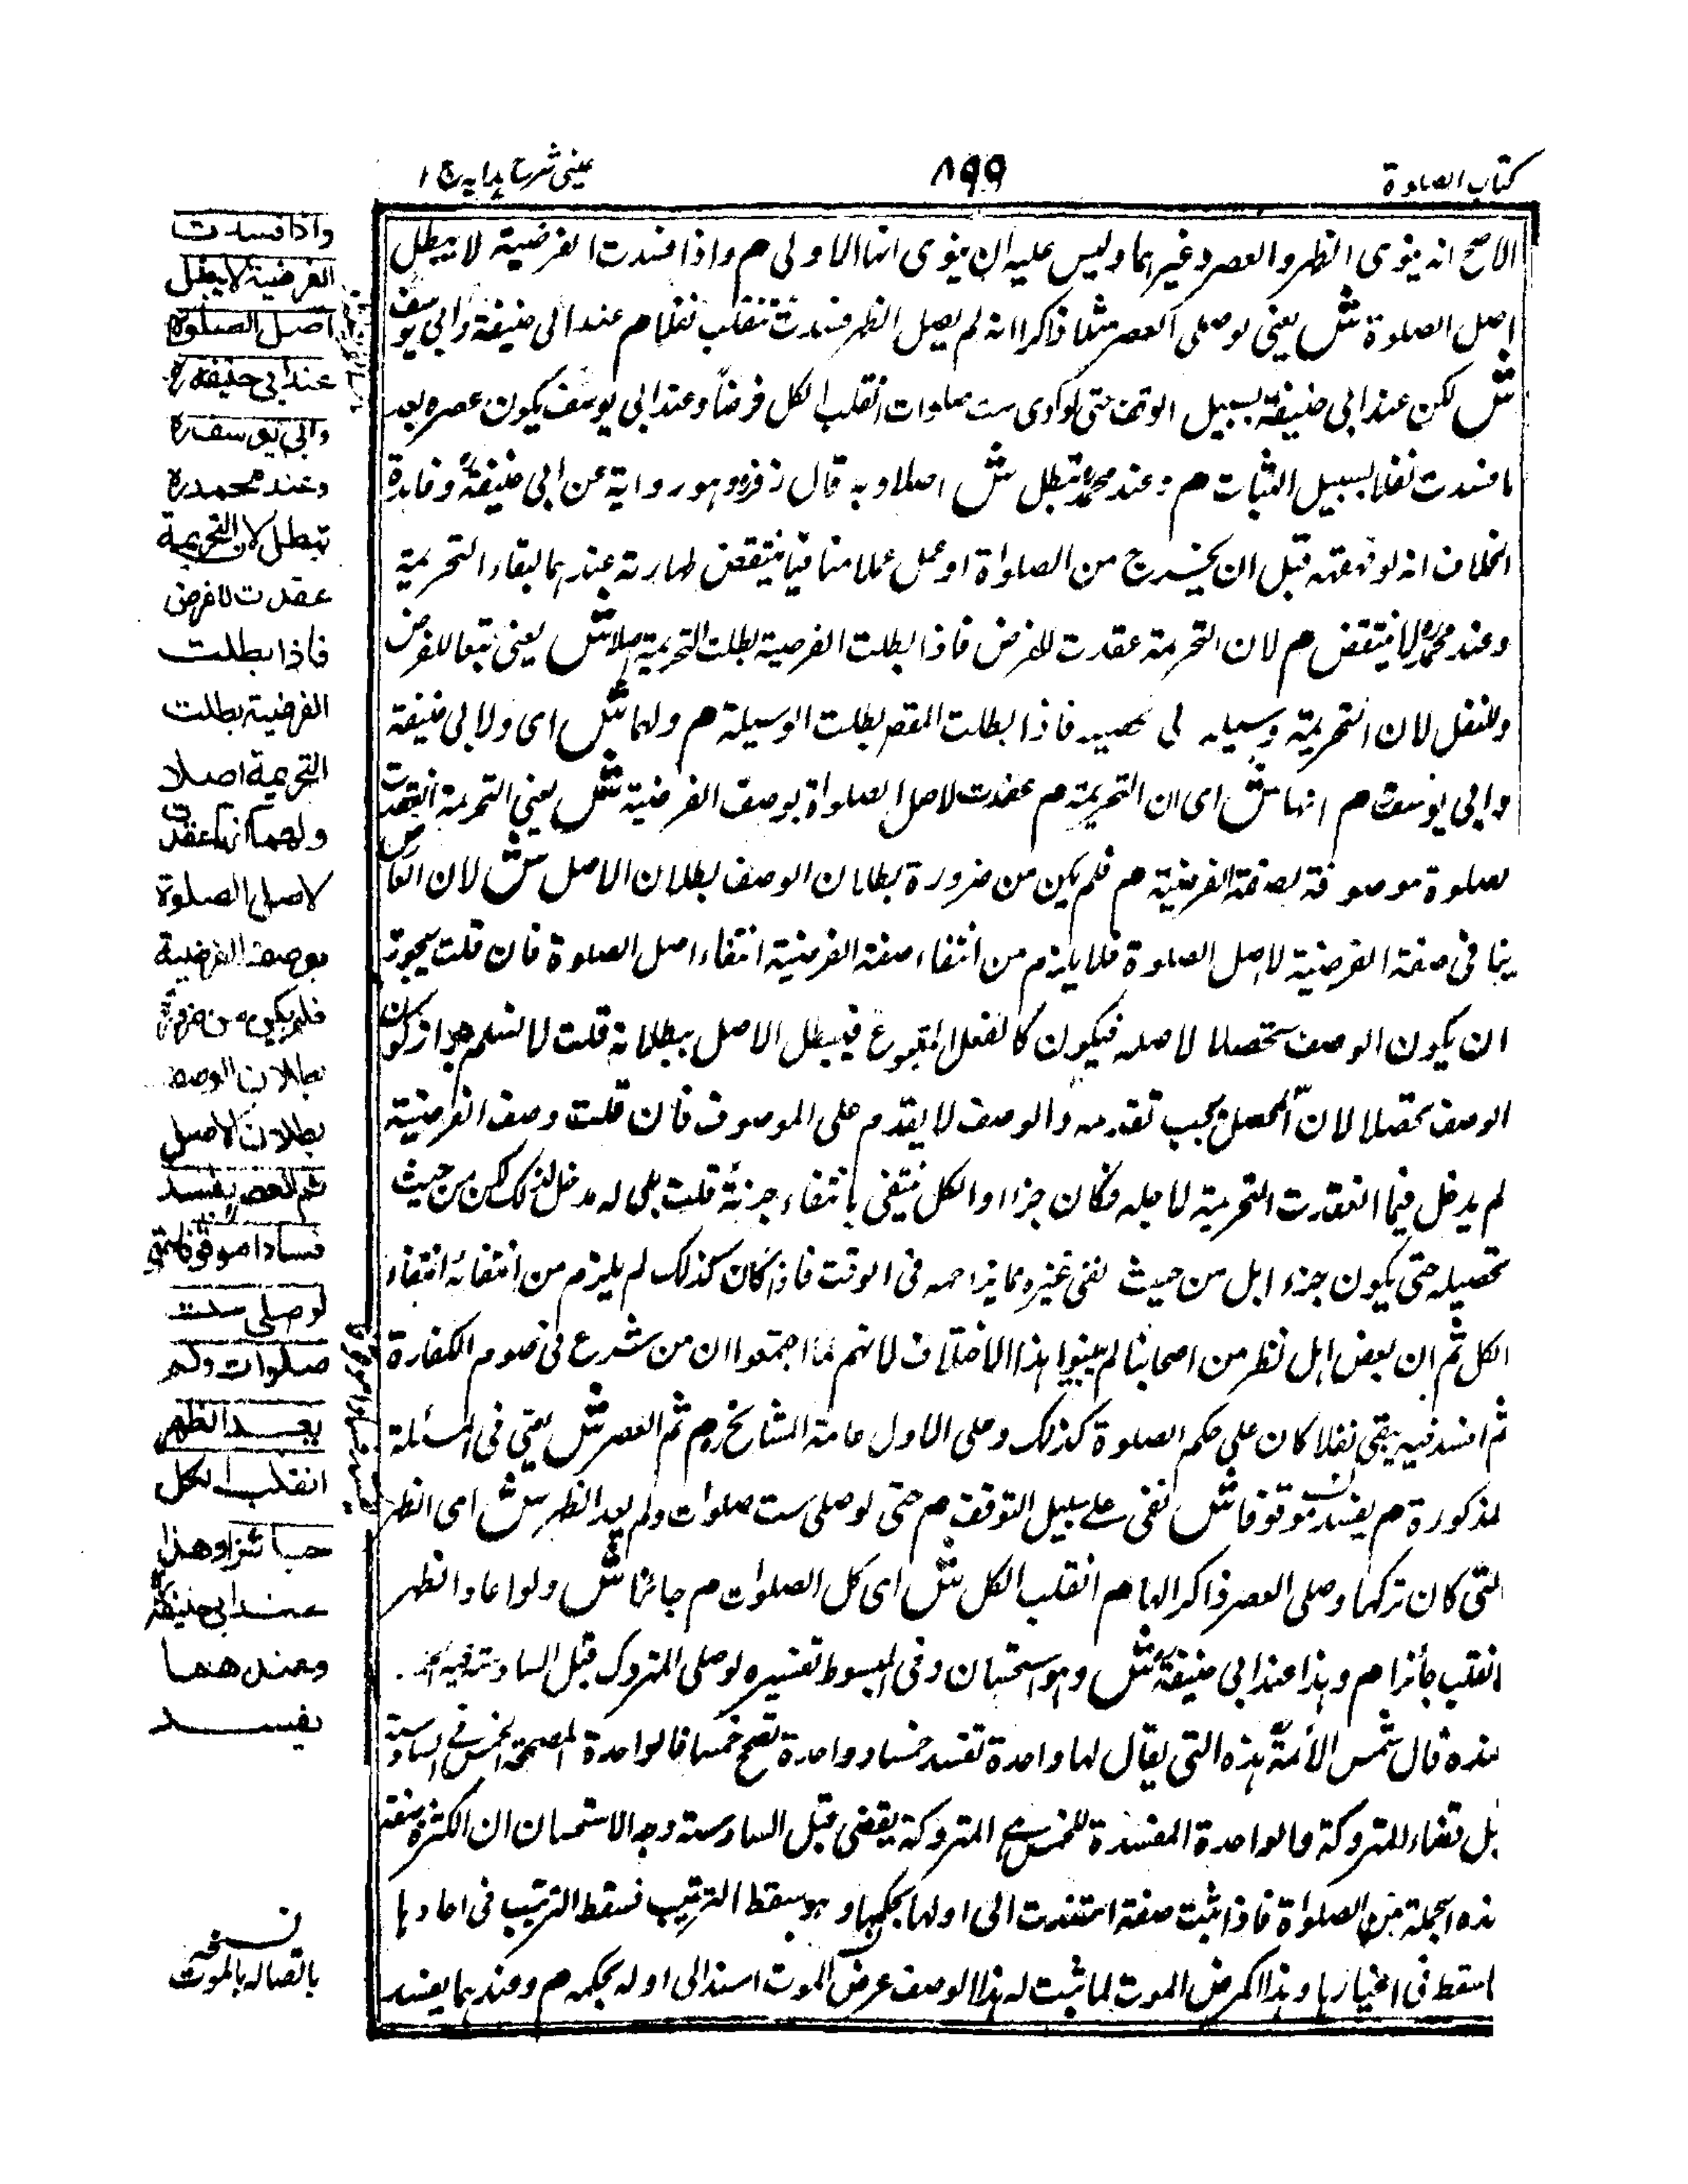 كتاب الصلوة
٨٩٩
عينى شرح هدايه ج ١
الاصح انه ينوى الظهر والعصر وغيرهما وليس عليه ان ينوى انها الاولى م واذا فسدت الفرضية لا يبطل
اصل الصلوة ش يعنى لو صلى العصر مثلا ذاكرا انه لم يصل الظهر فسدت تنقلب نفلا م عند ابى حنيفة وابى يوسف
ش لكن عند ابى حنيفة بسبيل التوقف حتى لو ادى ست صلوات انقلب الكل فرضا وعند ابى يوسف يكون عصره بعد
ما فسدت نفلا بسبيل الثبات م وعند محمد تبطل ش اصلا وبه قال زفر وهو رواية عن ابى حنيفة وفايدة
الخلاف انه لو قهقه قبل ان يخرج من الصلواة او عمل عملا منافيا ينتقض طهارته عندهما لبقاء التحريمة
وعند محمد لا ينتقض م لان التحريمة عقدت للفرض فاذا بطلت الفرضية بطلت التحريمة اصلا ش يعنى تبعا للفرض
وللنفل لان التحريمة وسيله فاذا بطلت المقصد بطلت الوسيلة م ولهما ش اى ولابى حنيفة
وابى يوسف م انها ش اى ان التحريمة م عقدت لاصل الصلواة بوصف الفرضية ش يعنى التحريمة انعقدت
لصلوة موصوفة بصفة الفرضية م فلم يكن من ضرورة بطلان الوصف بطلان الاصل ش لان العارض
ينافى صفة الفرضية لا اصل الصلوة فلا يلزم من انتفاء صفة الفرضية انتفاء اصل الصلوة فان قلت يجوز
ان يكون الوصف محصلا لاصله فيكون كالفصل فيبطل الاصل ببطلانه قلت لا نسلم جواز كون
الوصف محصلا لان المحصل يجب تقدمه والوصف لا يقدم على الموصوف فان قلت وصف الفرضية
لم يدخل فيما انعقدت التحريمة لاجله فكان جزاا والكل ينتفى بانتفاء جزئه قلت بلى له مدخل لذلك لكن من حيث
تحصيله حتى يكون جزءا بل من حيث نفى غيره مما يزاحمه فى الوقت فاذا كان كذلك لم يلزم من انتفائه انتفاء
الكل ثم ان بعض اهل نظر من اصحابنا لم يبينوا هذا الاختلاف لانهم لما اجتمعوا ان من شرع فى صوم الكفارة
ثم افسد فيه يبقى نفلا كان على حكم الصلوة كذلك وعلى الاول عامة المشايخ رح م ثم العصر ش يعنى فى المسئلة
المذكورة م يفسد موقوفا ش على سبيل التوقف م حتى لو صلى ست صلوات ولم يعد الظهر ش اى الظهر
التى كان تركها وصلى العصر ذاكرا لها م انقلب الكل ش اى كل الصلوات م جائزا ش ولو اعاد الظهر
انقلب جائزا م وهذا عند ابى حنيفة ش وهو استحسان وفى المبسوط تفسيره لو صلى المتروك قبل السادسة
هذه قال شمس الأئمة هذه التى يقال لها واحدة تفسد خمسا وواحدة تصح خمسا فالواحدة المصححة للخمس هى السادسة
قبل قضاء المتروكة والواحدة المفسدة للخمس هى المتروكة يقضى قبل السادسة وجه الاستحسان ان الكثرة صفة
هذه الجملة من الصلواة فاذا ثبت صفة استندت الى اولها بحكمها وهو سقط الترتيب فسقط الترتيب فى احادها
اسقط فى اغيارها وهذا كمرض الموت لما ثبت له هذا الوصف عرض الموت استند الى اوله بحكمه م وعندهما يفسد
واذا فسدت
الفرضية لا يبطل
اصل الصلوة
عند ابي حنيفة رح
وابي يوسف رح
وعند محمد رح
تبطل لان التحريمة
عقدت للفرض
فاذا بطلت
الفرضية بطلت
التحريمة اصلا
ولهما انها عقدت
لاصل الصلوة
بوصف الفرضية
فلم يكن من ضرورة
بطلان الوصف
بطلان الاصل
ثم العصر يفسد
فسادا موقوفا حتى
لو صلى ست
صلوات ولم
يعد الظهر
انقلب الكل
جائزا وهذا
عند ابي حنيفة رح
وعندهما
يفسد
نسخه
باتصاله بالموت